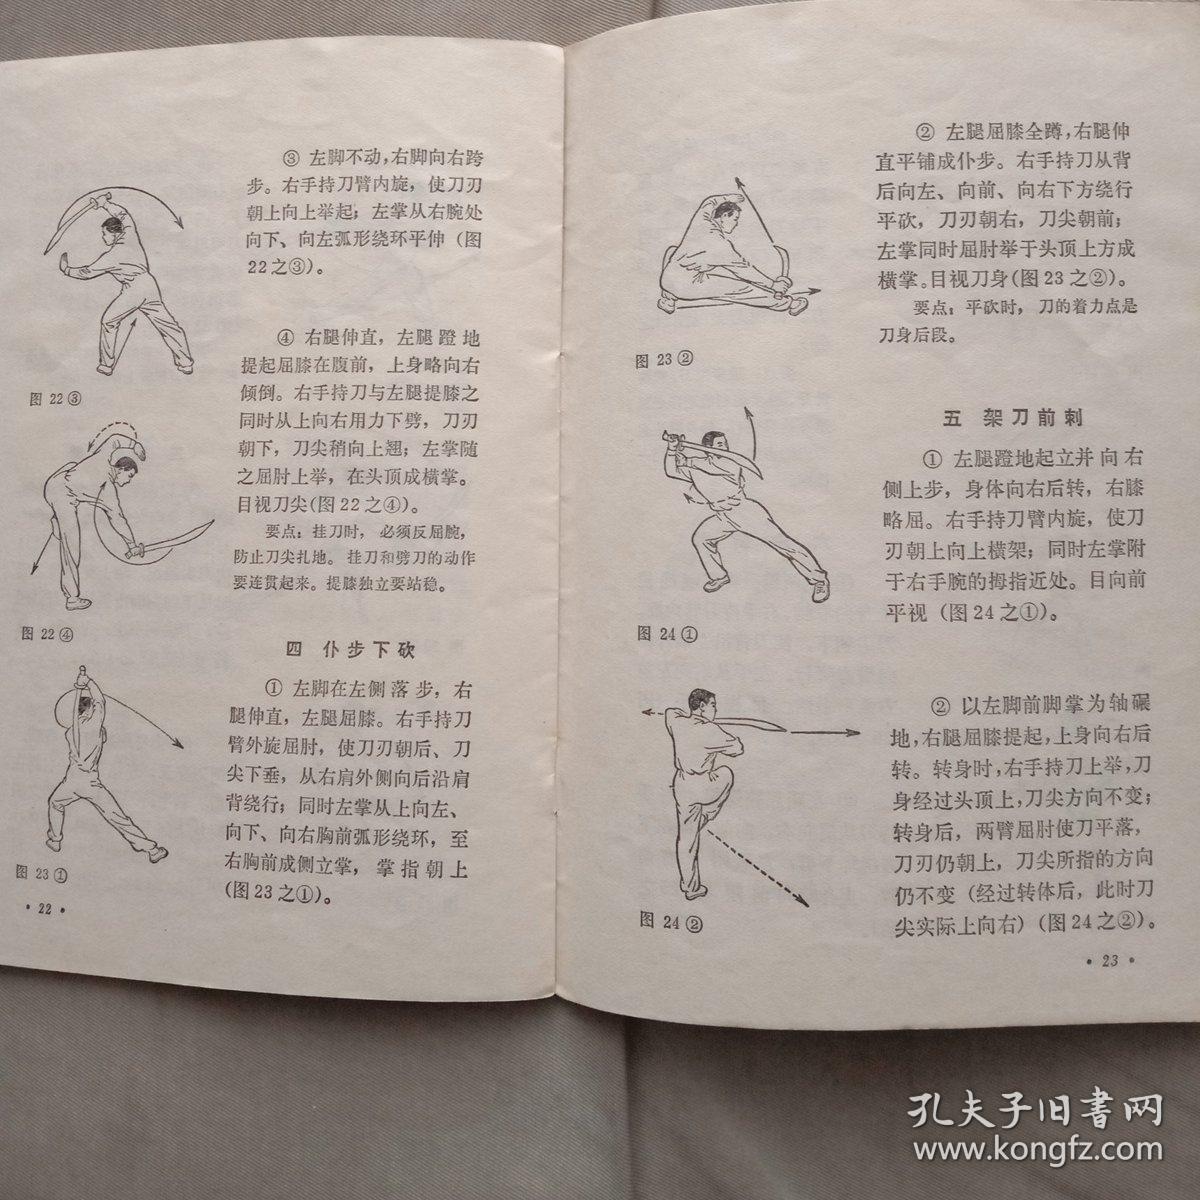 ③ 左脚不动，右脚向右跨
步。右手持刀臂内旋，使刀刃
朝上向上举起；左掌从右腕处
向下、向左弧形绕环平伸（图
22之③）。
图 22③
④ 右腿伸直，左腿蹬地
提起屈膝在腹前，上身略向右
倾倒。右手持刀与左腿提膝之
同时从上向右用力下劈，刀刃
朝下，刀尖稍向上翘；左掌随
之屈肘上举，在头顶成横掌。
目视刀尖(图22之④)。
要点：挂刀时，必须反屈腕，
防止刀尖扎地。挂刀和劈刀的动作
要连贯起来。提膝独立要站稳。
图 22④
四 仆步下砍
① 左脚在左侧落步，右
腿伸直，左腿屈膝。右手持刀
臂外旋屈肘，使刀刃朝后、刀
尖下垂，从右肩外侧向后沿肩
背绕行；同时左掌从上向左、
向下、向右胸前弧形绕环，至
右胸前成侧立掌，掌指朝上
(图23之①)。
图 23①
·22·
② 左腿屈膝全蹲，右腿伸
直平铺成仆步。右手持刀从背
后向左、向前、向右下方绕行
平砍，刀刃朝右，刀尖朝前；
左掌同时屈肘举于头顶上方成
横掌。目视刀身(图23之②)。
要点：平砍时，刀的着力点是
刀身后段。
图 23②
五 架刀前刺
① 左腿蹬地起立并向右
侧上步，身体向右后转，右膝
略屈。右手持刀臂内旋，使刀
刃朝上向上横架；同时左掌附
于右手腕的拇指近处。目向前
平视（图24之①）。
图 24①
② 以左脚前脚掌为轴碾
地，右腿屈膝提起，上身向右后
转。转身时，右手持刀上举，刀
身经过头顶上，刀尖方向不变；
转身后，两臂屈肘使刀平落，
刀刃仍朝上，刀尖所指的方向
仍不变（经过转体后，此时刀
尖实际上向右）(图24之②)。
图 24②
·23·
孔夫子旧书网
www.kongfz.com